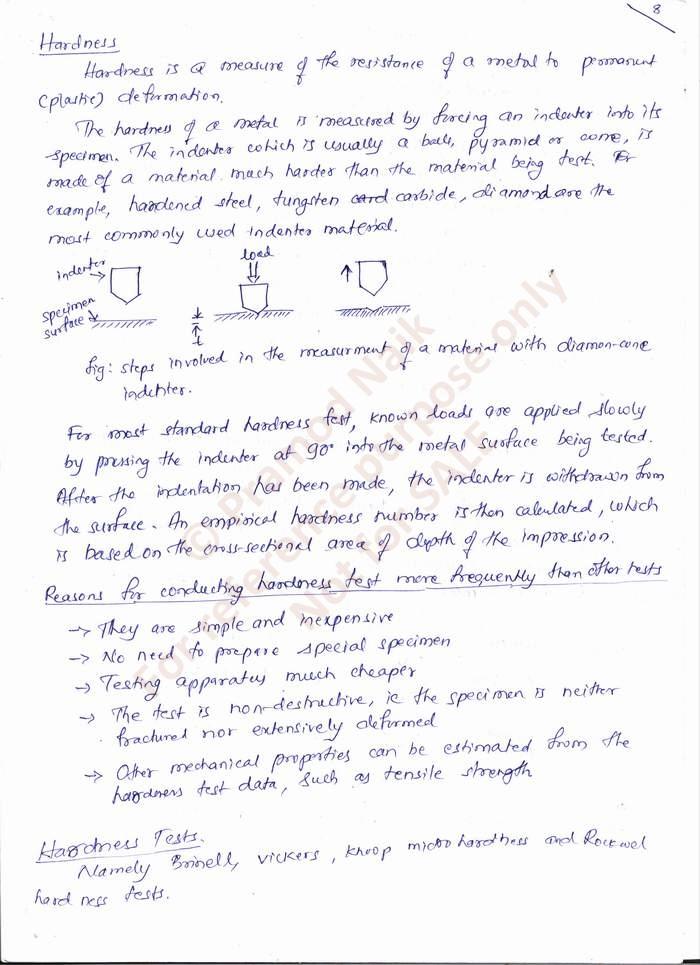 8
Hardness
Hardness is a measure of the resistance of a metal to permanent
(plastic) deformation.
The hardness of a metal is measured by forcing an indenter into its
specimen. The indenter which is usually a ball, pyramid or cone, is
made of a material much harder than the material being test. For
example, hardened steel, tungsten carbide, diamond are the
most commonly used indenter material.
indenter
load
specimen
surface
t
fig: steps involved in the measurment of a material with diamon-cone
indenter.
For most standard hardness test, known loads are applied slowly
by pressing the indenter at 90° into the metal surface being tested.
After the indentation has been made, the indenter is withdrawn from
the surface. An empirical hardness number is then calculated, which
is based on the cross-sectional area of depth of the impression.
Reasons for conducting hardness test more frequently than other tests
→ They are simple and inexpensive
→ No need to prepare special specimen
→ Testing apparatus much cheaper
→ The test is non-destructive, ie the specimen is neither
fractured nor extensively deformed
→ Other mechanical properties can be estimated from the
hardness test data, such as tensile strength
Hardness Tests.
Namely Brinell, Vickers, Knoop microhardness and Rockwel
hard ness tests.
© Pramod Naik
For reference purpose only
Not for SALE